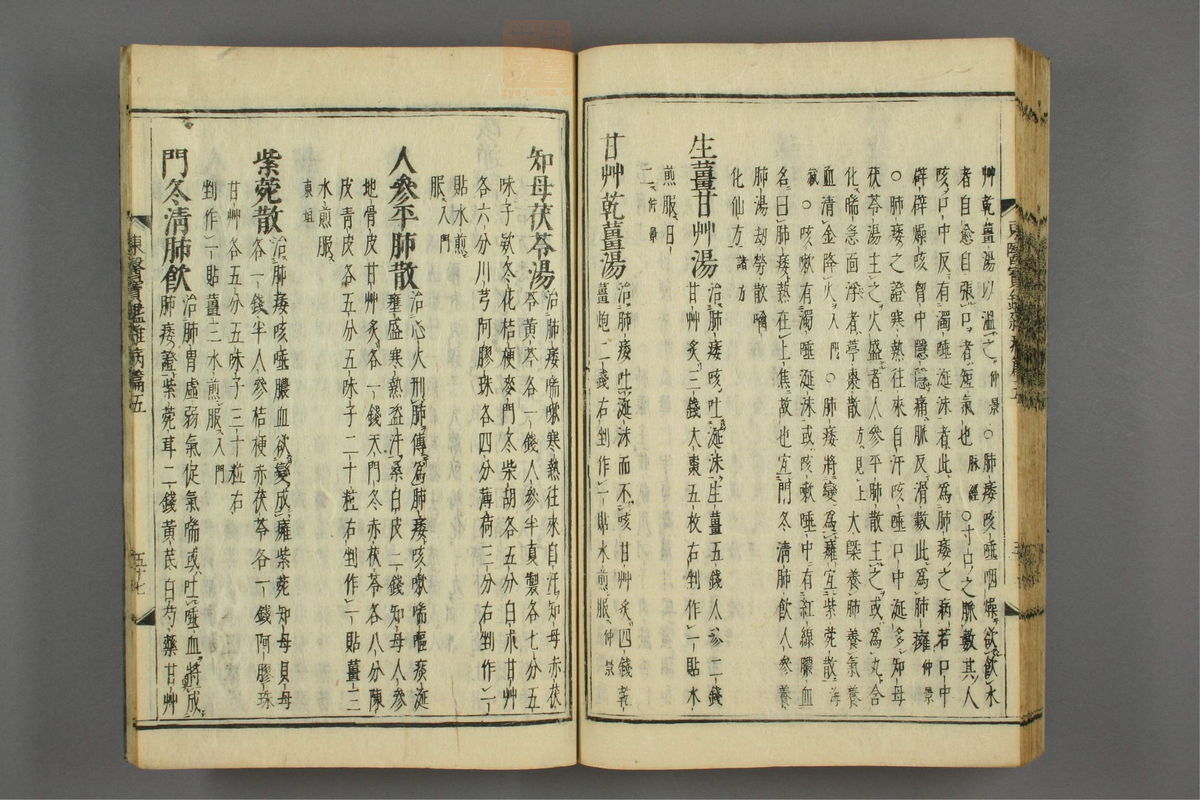 艸乾薑湯以溫之仲景○肺痿咳唾咽燥欲飮水
者自愈自張口者短氣也脉經○寸口之脈數其人
咳口中反有濁唾涎沫者此為肺痿之病若口中
辟辟燥咳胷中隱隱痛脈反滑數此為肺癰仲景
○肺痿之證寒熱往來自汗咳唾口中涎多知母
茯苓湯主之火盛者人參平肺散主之或為丸含
化喘急面浮者葶棗散方見上大槩養肺養氣養
血清金降火入門○肺痿將變為癰宜紫菀散海
藏○咳嗽有濁唾涎沫或咳嗽唾中有紅線膿血
名曰肺痿熱在上焦故也宜門冬清肺飮人參養
肺湯刧勞散噙
化仙方諸方
生薑甘艸湯治肺痿咳吐涎沫生薑五錢人參二錢
甘艸炙三錢大棗五枚右剉作一貼水
煎服日
二仲景
甘艸乾薑湯治肺痿吐涎沫而不咳甘艸炙四錢乾
薑炮二錢右剉作一貼水煎服仲景
知母茯苓湯治肺痿喘嗽寒熱往來自汗知母赤茯
苓黃芩各一錢人參半夏製各七分五
味子欵冬花桔梗麥門冬柴胡各五分白朮甘艸
各六分川芎阿膠珠各四分薄荷三分右剉作一
貼水煎
服入門
人參平肺散治心火刑肺傳為肺痿咳嗽喘嘔痰涎
壅盛寒熱盗汗桑白皮二錢知母人參
地骨皮甘艸炙各一錢天門冬赤茯苓各八分陳
皮青皮各五分五味子二十粒右剉作一貼薑三
水煎服
東垣
紫菀散治肺痿咳唾膿血欲變成癰紫菀知母貝母
各一錢半人參桔梗赤茯苓各一錢阿膠珠
甘艸各五分五味子三十粒右
剉作一貼薑三水煎服入門
門冬清肺飮治肺胃虛弱氣促氣喘或吐唾血將成
肺痿證紫菀茸二錢黃芪白芍藥甘艸
東醫寶鑑雜病篇五
五十七